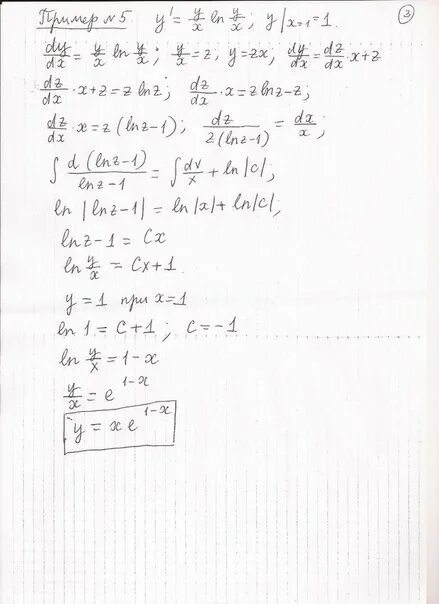 Пример №5 y' = y/x ln y/x, y|x=1 = 1. ③
dy/dx = y/x ln y/x; y/x = z, y = zx, dy/dx = dz/dx · x + z
dz/dx · x + z = z ln z; dz/dx · x = z ln z − z;
dz/dx · x = z (ln z − 1); dz/z(ln z − 1) = dx/x;
∫ d(ln z − 1)/ln z − 1 = ∫ dv/x + ln|c|,
ln |ln z − 1| = ln|x| + ln|c|,
ln z − 1 = Cx
ln y/x = Cx + 1
y = 1 при x = 1
ln 1 = c + 1; c = −1
ln y/x = 1 − x
y/x = e^(1−x)
y = x e^(1−x)